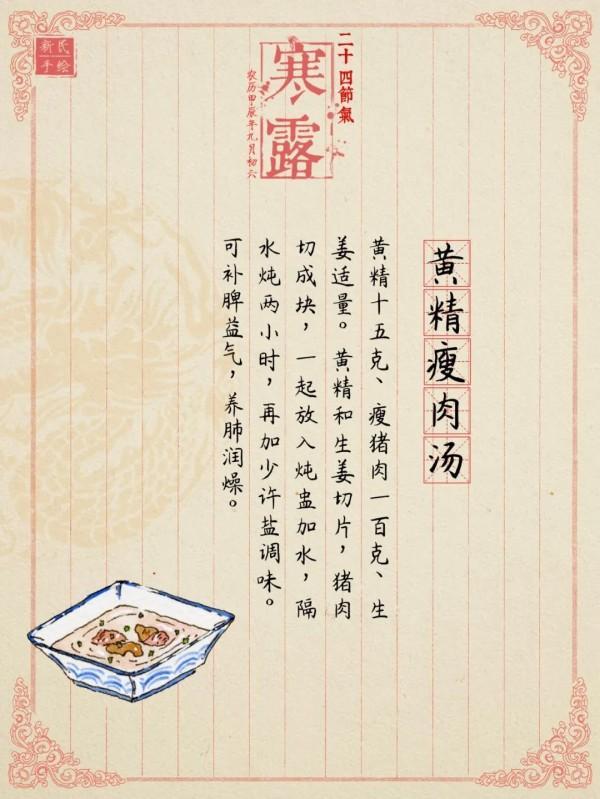 新民
手绘
二十四節氣
寒露
农历甲辰年九月初六
黄精瘦肉汤
黄精十五克、瘦猪肉一百克、生
姜适量。黄精和生姜切片，猪肉
切成块，一起放入炖盅加水，隔
水炖两小时，再加少许盐调味。
可补脾益气，养肺润燥。